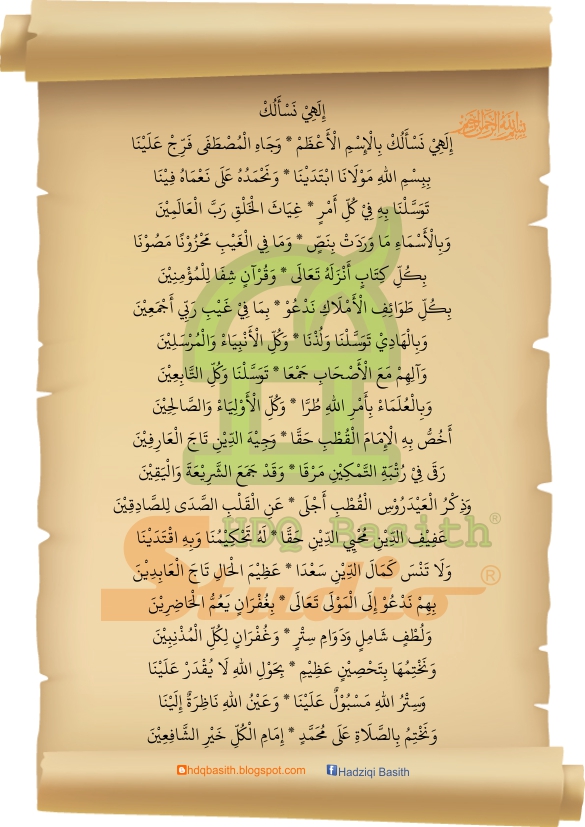 إِلَهِيْ نَسْأَلُكْ
إِلَهِيْ نَسْأَلُكْ بِالْإِسْمِ الْأَعْظَمْ * وَجَاهِ الْمُصْطَفَى فَرِّجْ عَلَيْنَا
بِبِسْمِ اللهِ مَوْلَانَا ابْتَدَيْنَا * وَنَحْمَدُهُ عَلَى نَعْمَاهُ فِيْنَا
تَوَسَّلْنَا بِهِ فِيْ كُلِّ أَمْرٍ * غِيَاثَ الْخَلْقِ رَبَّ الْعَالَمِيْنَ
وَبِالْأَسْمَاءِ مَا وَرَدَتْ بِنَصٍّ * وَمَا فِي الْغَيْبِ مَخْزُوْنًا مَصُوْنَا
بِكُلِّ كِتَابٍ أَنْزَلَهُ تَعَالَى * وَقُرْآنٍ شِفَا لِلْمُؤْمِنِيْنَ
بِكُلِّ طَوَائِفِ الْأَمْلَاكِ نَدْعُوْ * بِمَا فِيْ غَيْبِ رَبِّي أَجْمَعِيْنَ
وَبِالْهَادِيْ تَوَسَّلْنَا وَلُذْنَا * وَكُلِّ الْأَنْبِيَاءْ وَالْمُرْسَلِيْنَ
وَآلِهِمْ مَعَ الْأَصْحَابِ جَمْعَا * تَوَسَّلْنَا وَكُلِّ التَّابِعِيْنَ
وَبِالْعُلَمَاءْ بِأَمْرِ اللهِ طُرًّا * وَكُلِّ الْأَوْلِيَاءْ وَالصَّالِحِيْنَ
أَخُصُّ بِهِ الْإِمَامَ الْقُطْبِ حَقًّا * وَجِيْهَ الدِّيْنِ تَاجَ الْعَارِفِيْنَ
رَقَى فِيْ رُتْبَةِ التَّمْكِيْنِ مَرْقَا * وَقَدْ جَمَعَ الشَّرِيْعَةَ وَالْيَقِيْنَ
وَذِكْرُ الْعَيْدَرُوْسِ الْقُطْبِ أَجْلَى * عَنِ الْقَلْبِ الصَّدَى لِلصَّادِقِيْنَ
عَفِيْفِ الدِّيْنِ مُحْيِي الدِّيْنِ حَقًّا * لَهُ تَحْكِيْمُنَا وَبِهِ اقْتَدَيْنَا
وَلَا تَنْسَ كَمَالَ الدِّيْنِ سَعْدَا * عَظِيْمَ الْحَالِ تَاجَ الْعَابِدِيْنَ
بِهِمْ نَدْعُوْ إِلَى الْمَوْلَى تَعَالَى * بِغُفْرَانٍ يَعُمُّ الْحَاضِرِيْنَ
وَلُطْفٍ شَامِلٍ وَدَوَامِ سِتْرٍ * وَغُفْرَانٍ لِكُلِّ الْمُذْنِبِيْنَ
وَنَخْتِمُهَا بِتَحْصِيْنٍ عَظِيْمٍ * بِحَوْلِ اللهِ لَا يُقْدَرْ عَلَيْنَا
وَسِتْرُ اللهِ مَسْبُوْلٌ عَلَيْنَا * وَعَيْنُ اللهِ نَاظِرَةٌ إِلَيْنَا
وَنَخْتِمُ بِالصَّلَاةِ عَلَى مُحَمَّدٍ * إِمَامِ الْكُلِّ خَيْرِ الشَّافِعِيْنَ
HDQ Basith®
Studio®
hdqbasith.blogspot.com
Hadziqi Basith